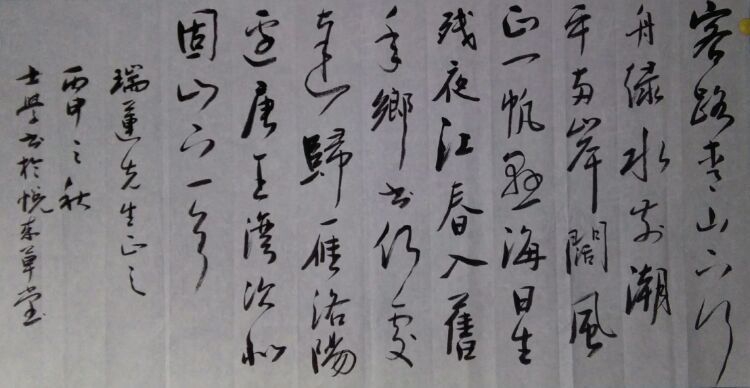 客路青山下行
舟绿水前潮
平兩岸闊風
正一帆懸海日生
残夜江春入舊
年鄉書何處
達歸雁洛陽
邊唐王灣次北
固山下一首
瑞蓮先生正之
丙申之秋
士學書於悦草堂